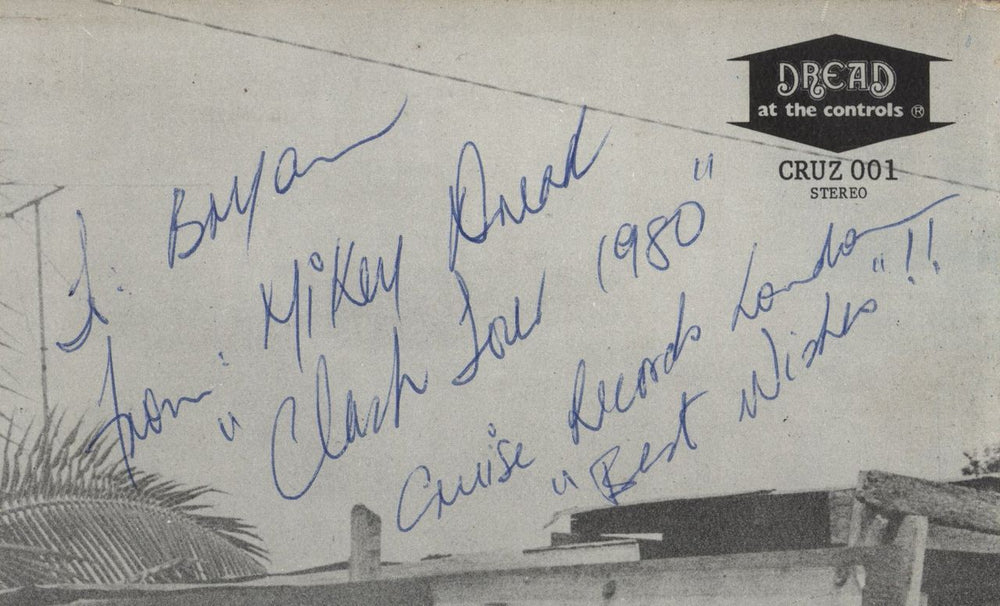 DREAD
at the controls ®
CRUZ 001
STEREO
To: Bryan
From: Mikey Dread
"Clash Tour 1980"
Cruise Records London
"Best Wishes"!!